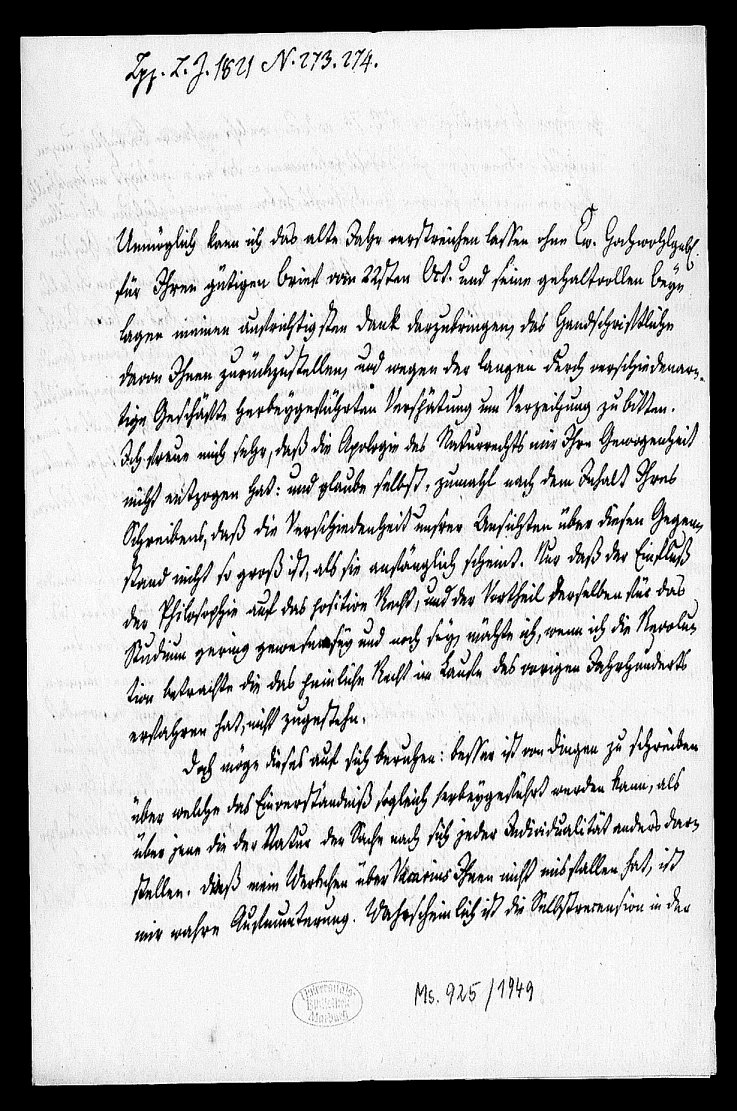 Lpz. L. Z. 1821 N. 273. 274.
Unmöglich kann ich das alte Jahr verstreichen lassen ohne Ew. Hochwohlgeb.
für Ihren gütigen Brief vom 22sten Oct. und seine gehaltvollen Bey-
lagen meinen aufrichtigsten Dank darzubringen, das Handschriftliche
davon Ihnen zurückzustellen, und wegen der langen durch verschiedenar-
tige Geschäfte herbeygeführten Verspätung um Verzeihung zu bitten.
Ich freue mich sehr, daß die Apologie des Naturrechts mir Ihre Gewogenheit
nicht entzogen hat: und glaube selbst, zumahl nach dem Inhalt Ihres
Schreibens, daß die Verschiedenheit unsrer Ansichten über diesen Gegen-
stand nicht so groß ist, als sie anfänglich scheint. Nur daß der Einfluß
der Philosophie auf das positive Recht, und der Vortheil derselben für das
Studium gering gewesen sey und noch sey, möchte ich, wenn ich die Revolu-
tion betrachte die das peinliche Recht im Laufe des vorigen Jahrhunderts
erfahren hat, nicht zugestehn.
Doch möge dieses auf sich beruhen: besser ist von dingen zu schreiben
über welche das Einverständniß sogleich herbeygeführt werden kann, als
über jene die der Natur der Sache nach sich jeder Individualität anders dar-
stellen. Daß mein Werkchen über Marius Ihnen nicht misfallen hat, ist
mir wahre Aufmunterung. Wahrscheinlich ist die Selbstrecension in der
Universitäts-
Bibliothek
Marburg
Ms. 925/1949